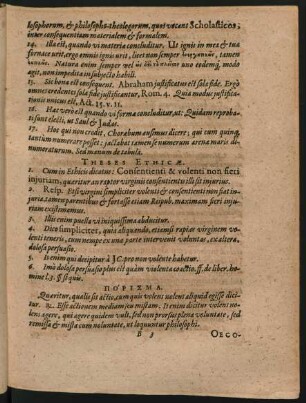 losophorum, & philosopho-theologorum, quos vocant Scholasticos,
inter consequentiam materialem & formalem.
14. Illa est, quando vi materiæ concluditur. Ut ignis in mea & tua
fornace urit, ergo omnis ignis urit, licet non semper
Natura enim semper uno eodemq́; modo
agit, non impedita in subjecto habili.
15. Sic bona est consequent. Abraham justificatur est sola fide. Ergò
omnes credentes sola fide justificantur, Rom. 4. Quia modus justifica-
tionis unicus est, Act. 15. v. 11.
16. Hæc verò est quando vi formæ concluditur, ut: Quidam reproba-
ti sunt electi, ut Saul & Judas.
17. Hoc qui non credit, Choræbum ausimus dicere; qui cum quinq́;
tantùm numerare posset; jactabat tamen se numerum arenæ maris di-
numeraturum. Sed manum de tabula.
THESES ETHICÆ.
1. Cum in Ethicis dicatur: Consentienti & volenti non fieri
injuriam, quæritur an raptor virginis consentientis illi sit injurius.
2. Resp. Etsi virgini simpliciter volenti & consentienti non fiat in-
juria, tamen parentibus & fortasse etiam Reipub. maximam fieri injuriam
existimamus.
3. Ibit enim puella vi iniquissima abducitur.
4. Dico simpliciter, quia aliquando, etiamsi rapiat virginem vo-
lenti teneris, cum nempe ex una parte interveniat voluntas, ex altera
dolosa persuasio.
5. Is enim qui decipitur à JC. pro non volente habetur.
6. Imò dolosa persuasio plus est quàm violenta coactio. ff. de liber. ho-
mine l. 3. §. si quis.
ΠΟΡΙΣΜΑ.
Quæritur, qualis sit actio, cum quis volens nolens aliquid egisse dici-
tur. Esse actionem mediam seu mixtam. Is enim dicitur volens no-
lens agere, qui agere quidem vult, sed non prorsus plena voluntate, sed
remissa & missa cum noluntate, ut loquuntur philosophi.
B 3 OECO-